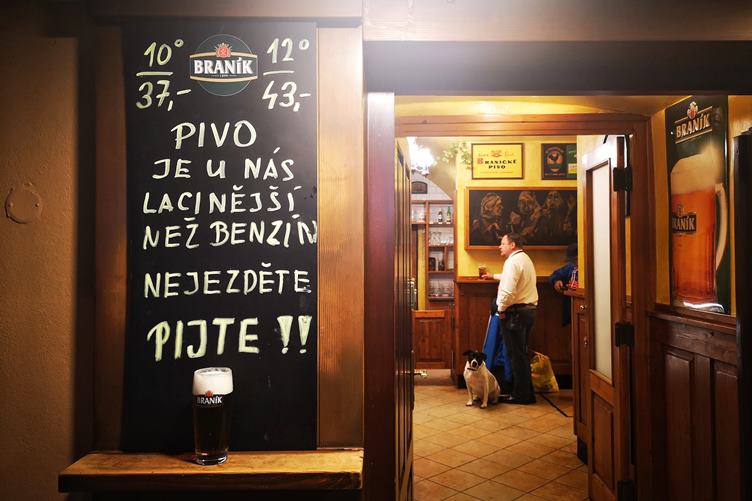 10° BRANÍK 12°
37,- 43,-
PIVO
JE U NÁS
LACINĚJŠÍ
NEŽ BENZÍN
NEJEZDĚTE
PIJTE !!
BRANÍK
BRANICKÉ
PIVO
BRANÍK
BRANÍK